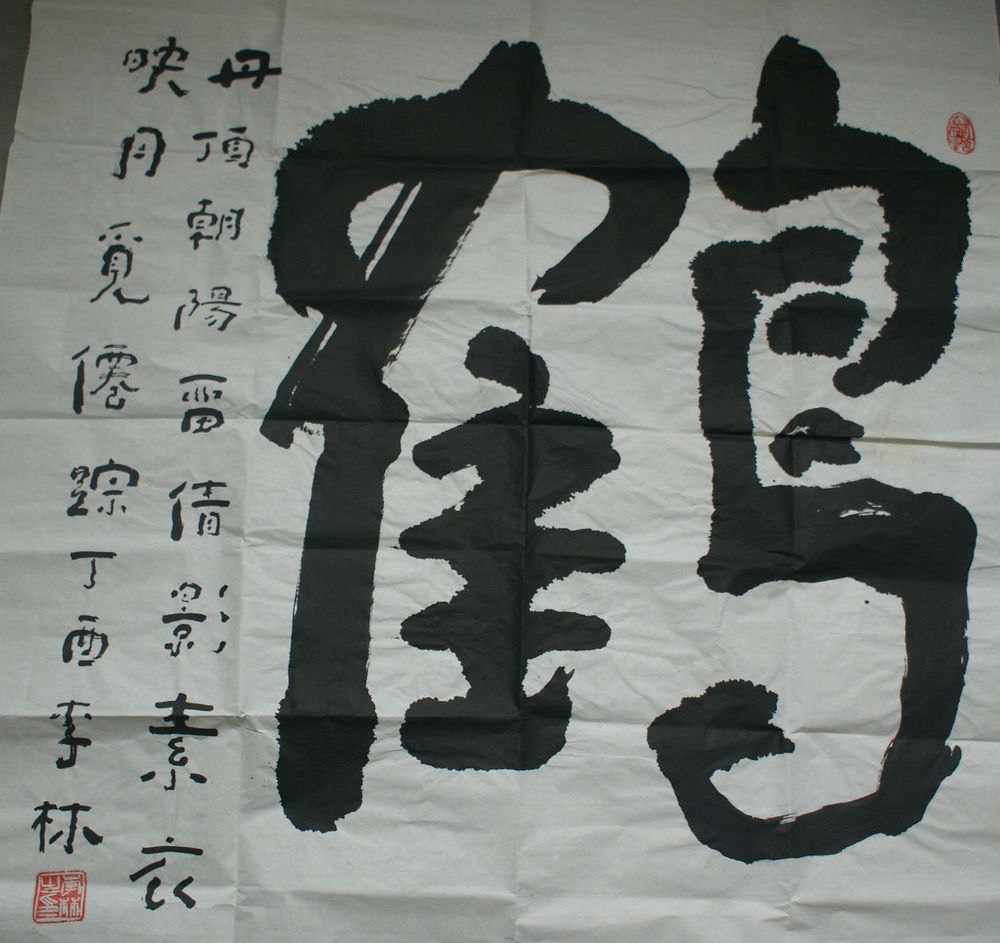 鶴
丹頂朝陽留倩影素衣
映月覓僊踪丁酉李林